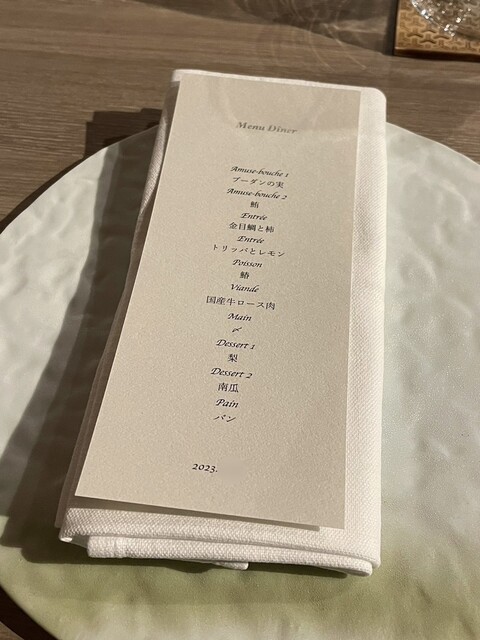 Menu Dîner
Amuse-bouche 1
ブーダンの実
Amuse-bouche 2
鮪
Entrée
金目鯛と柿
Entrée
トリッパとレモン
Poisson
鰆
Viande
国産牛ロース肉
Main
〆
Dessert 1
梨
Dessert 2
南瓜
Pain
パン
2023.